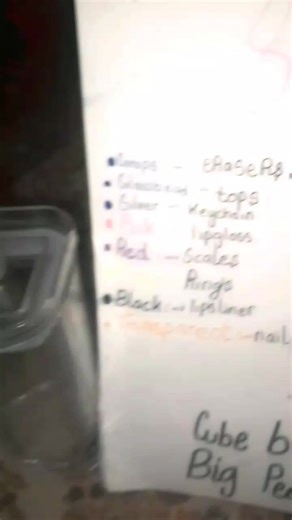 - eRaSeRs
- tops
Silver - Keychain
lipgloss
Red - Scales
Rings
Black - lipsliner
Transparent - nail
Cube b
Big Pe